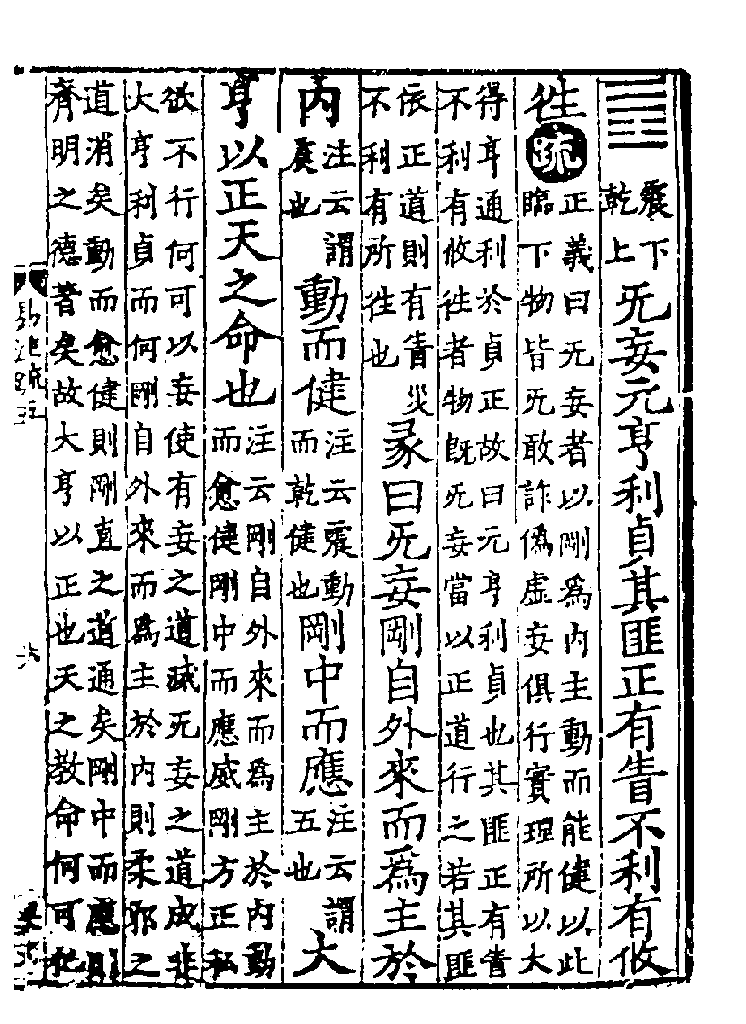 震下
乾上
旡妄元亨利貞其匪正有眚不利有攸
徃
疏
正義曰旡妄者以剛爲内主動而能健以此
臨下物皆旡敢詐偽虛妄俱行實理所以大
得亨通利於貞正故曰元亨利貞也其匪正有眚
不利有攸徃者物旣旡妄當以正道行之若其匪
依正道則有眚災
不利有所徃也
彖曰旡妄剛自外來而爲主於
内
注云謂
震也
動而健
注云震動
而乾健也
剛中而應
注云謂
五也
大
亨以正天之命也
注云剛自外來而爲主於内動
而愈健剛中而應威剛方正私
欲不行何可以妄使有妄之道滅旡妄之道成非
大亨利貞而何剛自外來而爲主於内則柔邪之
道消矣動而愈健則剛直之道通矣剛中而應則
齊明之德著矣故大亨以正也天之教命何可犯
六